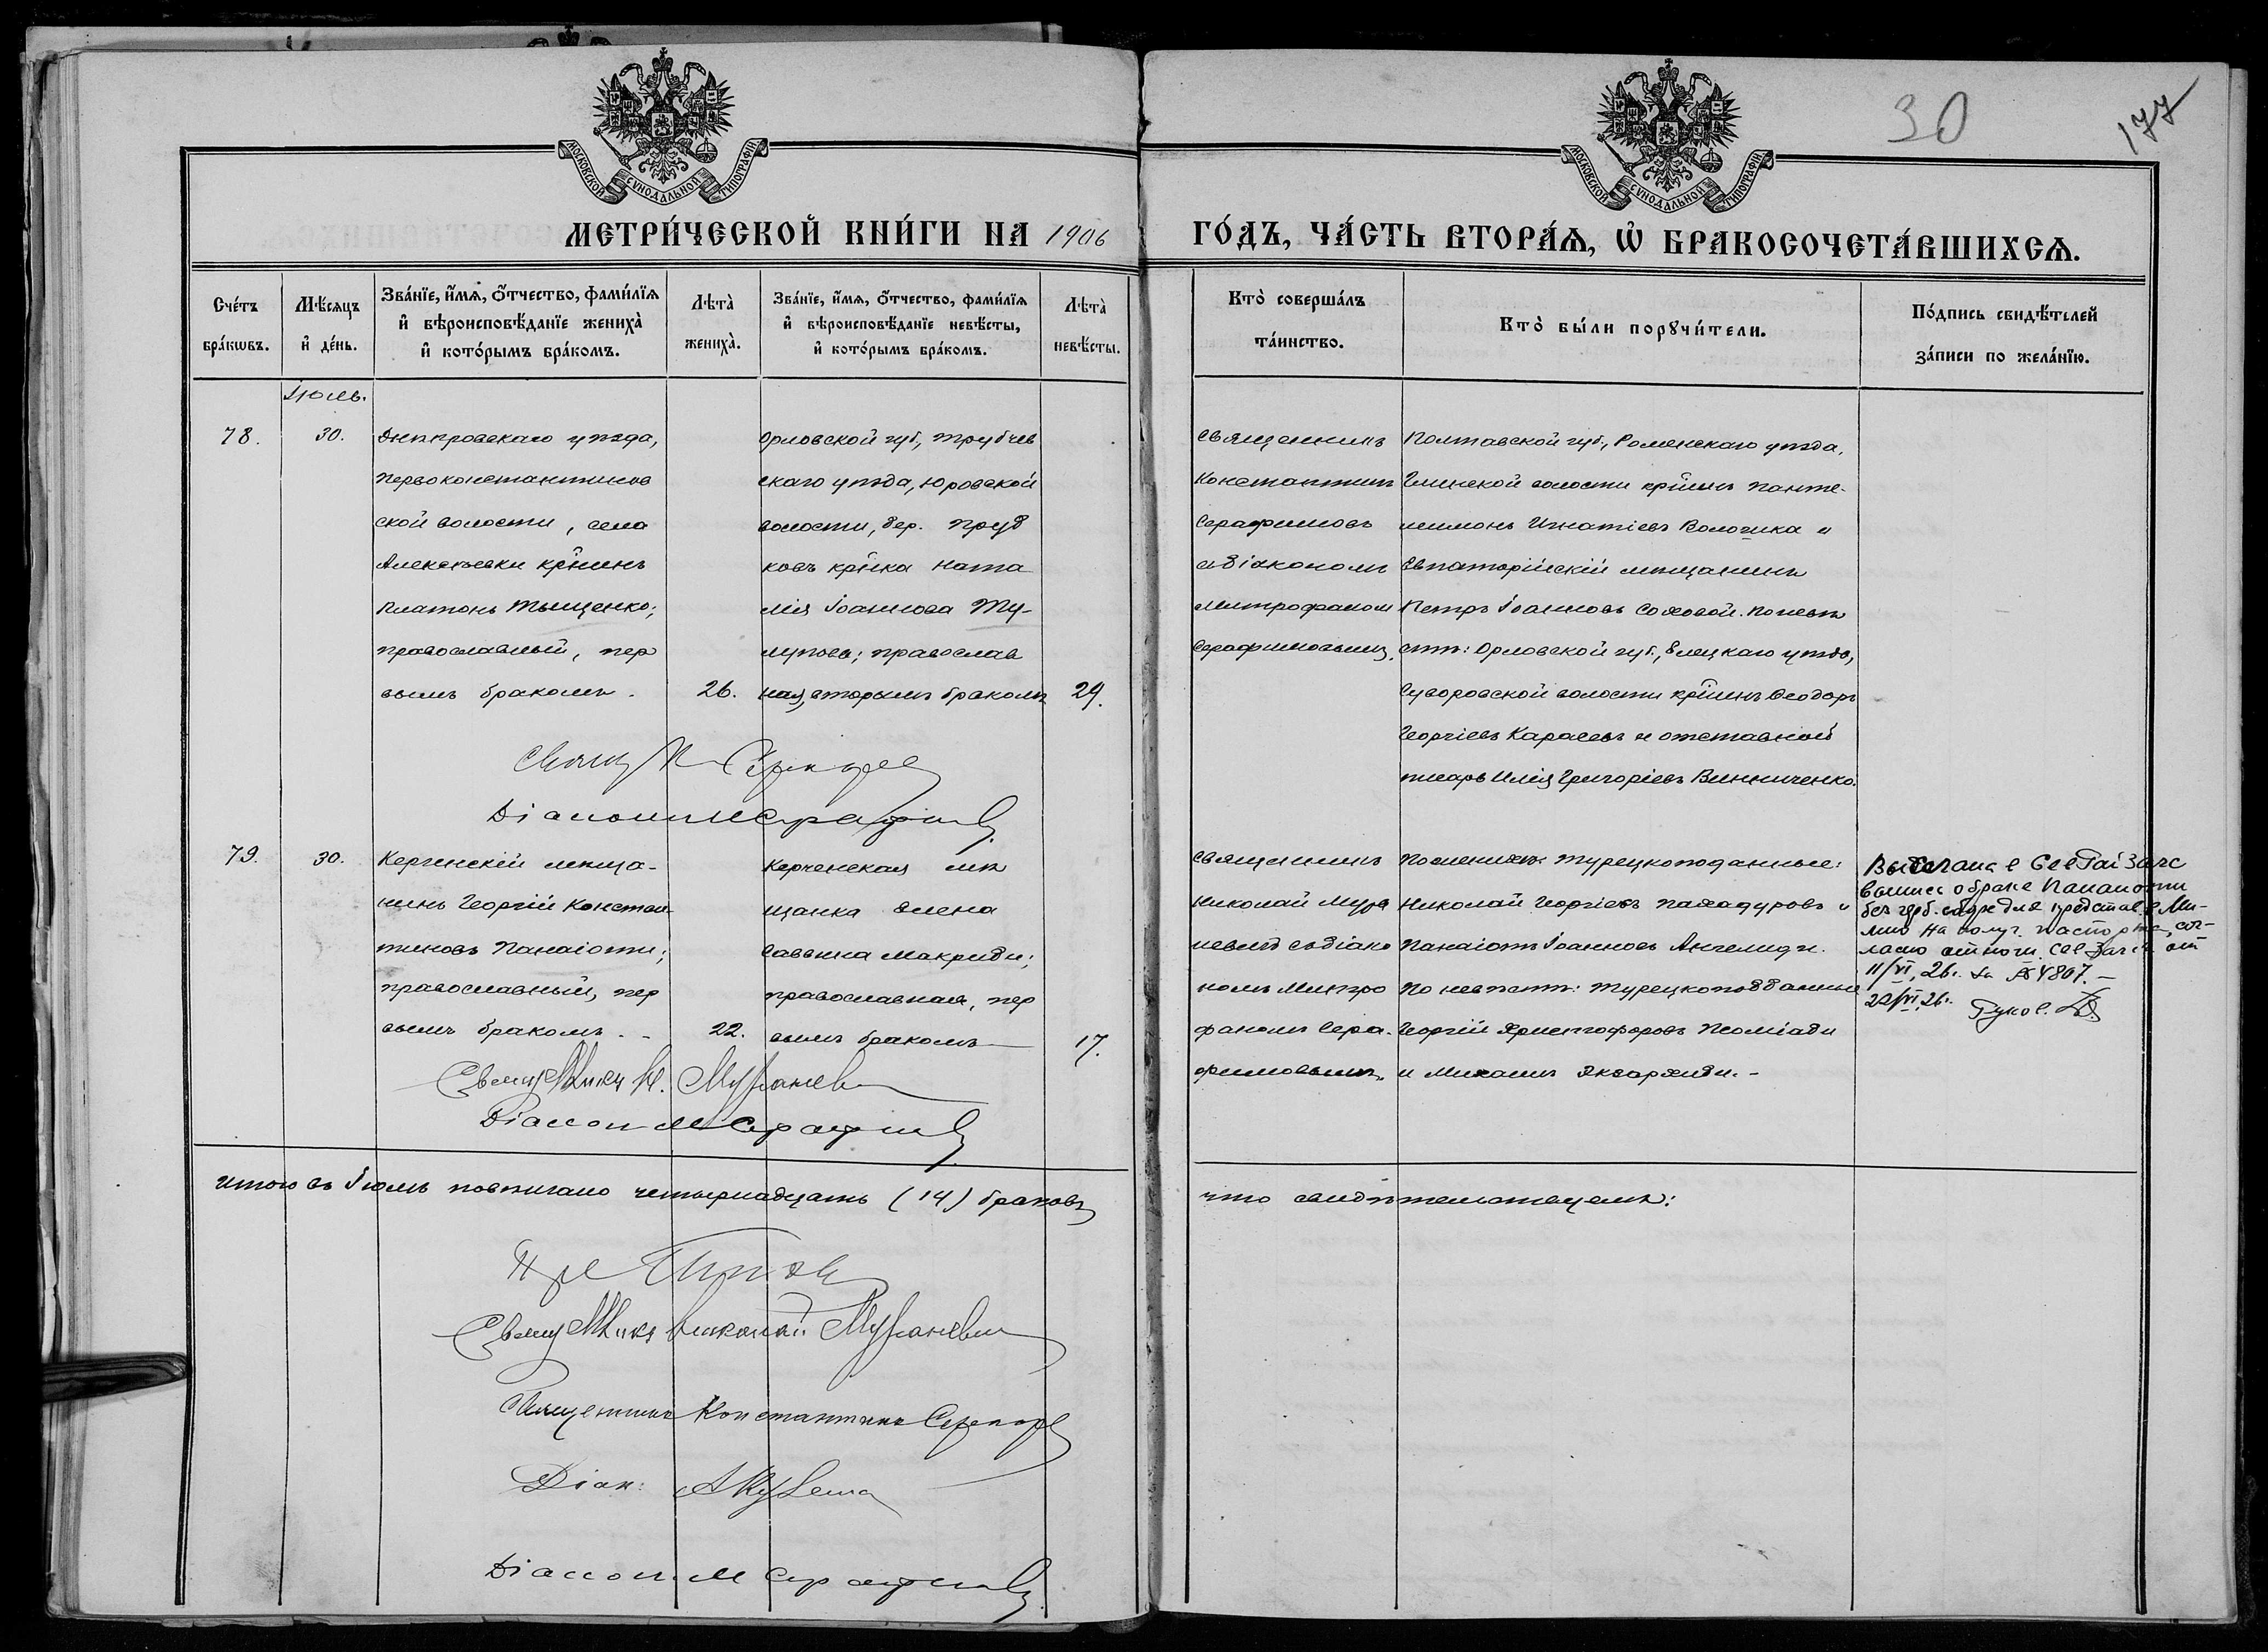 30
177
МОСКОВСКОЙ СУНОДАЛЬНОЙ ТИПОГРАФІИ
МОСКОВСКОЙ СУНОДАЛЬНОЙ ТИПОГРАФІИ
МЕТРИ́ЧЕСКОЙ КНИ́ГИ НА 1906
ГО́ДЪ, ЧА́СТЬ ВТОРА́Ѧ, Ѽ БРАКОСОЧЕТА́ВШИХСѦ.
Сче́тъ
бра́кѡвъ.
Мѣ́сяцъ
и҆ де́нь.
Зва́нїе, и҆́мѧ, ѻ҆́тчество, фами́лїѧ
и҆ вѣроисповѣ́данїе жениха̀
и҆ кото́рымъ бра́комъ.
Лѣта̀
жениха̀.
Зва́нїе, и҆́мѧ, ѻ҆́тчество, фами́лїѧ
и҆ вѣроисповѣ́данїе невѣ́сты,
и҆ кото́рымъ бра́комъ.
Лѣта̀
невѣ́сты.
Кто̀ соверша́лъ
та́инство.
Кто̀ бы́ли порꙋчи́тели.
По́дпись свидѣ́телей
за́писи по жела́нїю.
Іюль.
78.
30.
Днѣпровскаго уѣзда,
Первоконстантинов
ской волости, села
Алексѣевки кр̃нинъ
Платонъ Тыщенко;
православный, пер
вымъ бракомъ.
26.
Орловской губ., Трубчев
скаго уѣзда, Юровской
волости, дер. Пруд
ковъ кр̃нка Ната
лія Іоаннова Ту-
лупова; православ
ная, вторымъ бракомъ
29.
Священникъ
Константинъ
Серафимовъ
съ діакономъ
Митрофаномъ
Серафимовымъ.
Полтавской губ., Роменскаго уѣзда,
Глинской волости кр̃нинъ Панте-
леимонъ Игнатіевъ Волочика и
Евпаторійскій мѣщанинъ
Петръ Іоанновъ Соловой. По невѣ
стѣ: Орловской губ., Елецкаго уѣзда,
Суворовской волости кр̃нинъ Ѳеодоръ
Георгіевъ Карасевъ и отставной
писарь Илія Григоріевъ Винниченко.
Діаконъ М Серафимовъ
79.
30.
Керченскій мѣща-
нинъ Георгій Констан
тиновъ Панаіоти;
православный, пер
вымъ бракомъ. -
22.
Керченская мѣ
щанка Елена
Саввина Макриди;
православная, пер
вымъ бракомъ
17.
Священникъ
Николай Мура
невичъ съ діако
номъ Митро
фаномъ Сера-
фимовымъ.
По женихѣ: турецкоподданные:
Николай Георгіевъ Пахадуровъ и
Панаіотъ Іоанновъ Ангелиди.
По невѣстѣ: турецкоподданные
Георгій Христофоровъ Псоміади
и Михаилъ Экзархиди. -
без герб. сбора для представ. в Ми-
лицию на получ. паспорта, сог-
ласно отнош. от
11/VI 26 г. за № 4807. -
22/VI 26 г.
Священникъ Н. Мураневичъ
Діаконъ М Серафимовъ
Итого въ Іюлѣ повѣнчано четырнадцать (14) браковъ
что свидѣтельствуемъ:
Священникъ Николай Мураневичъ
Священникъ Константинъ Серафимовъ
Діаконъ М Серафимовъ